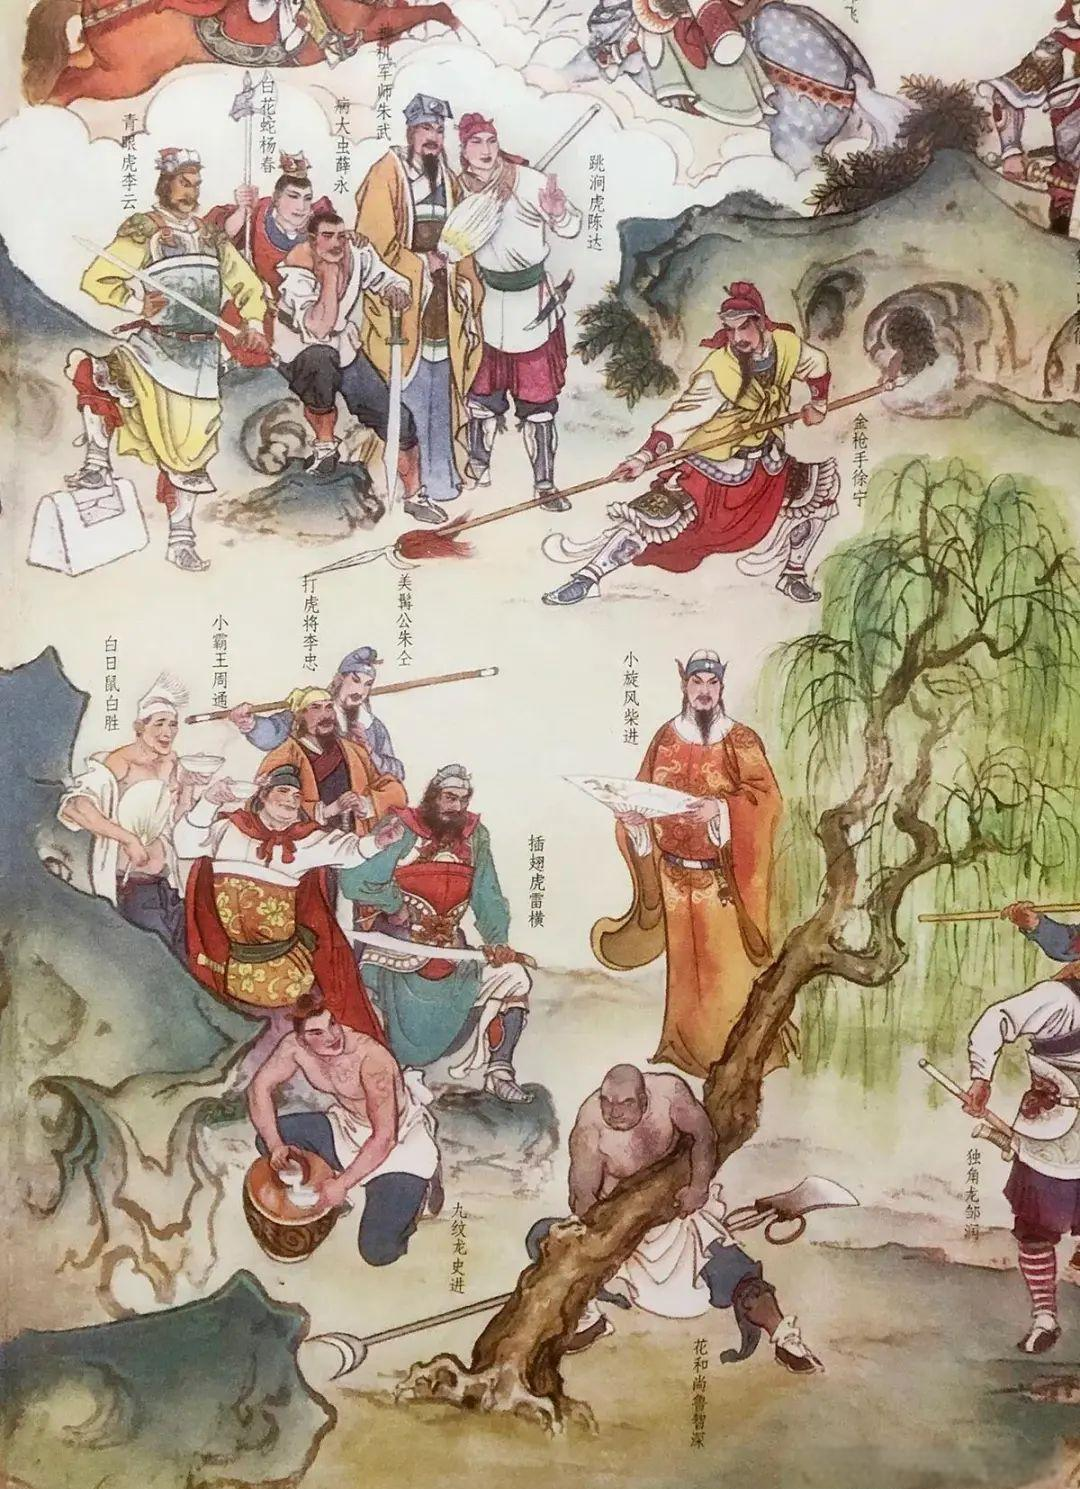 飞
神机军师朱武
白花蛇杨春
病大虫薛永
青眼虎李云
跳涧虎陈达
金枪手徐宁
美髯公朱仝
打虎将李忠
小霸王周通
白日鼠白胜
小旋风柴进
插翅虎雷横
独角龙邹润
九纹龙史进
花和尚鲁智深